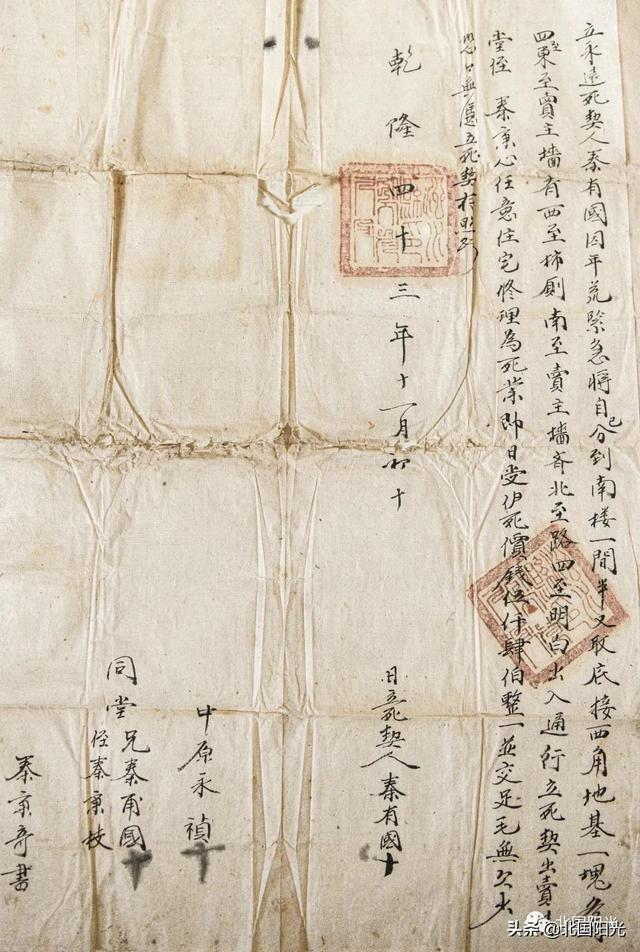 立永遠死契人秦有國因年荒緊急將自己分到南楼一間半又取底接西角地基一塊
四至東至賣主墻有西至柿厠南至賣主墻齐北至路四至明白出入通行立死契出賣
堂侄 秦東心任意住宅修理為死業即日受仴死價錢伍仟肆伯整一並交足毛無欠少
恐口無凴立死契存照
乾隆四十三年十一月初十
日立死契人秦有國十
中原永禎十
同堂兄秦甫國十
侄秦東枝
秦東奇書
北国阳光
头条@北国阳光